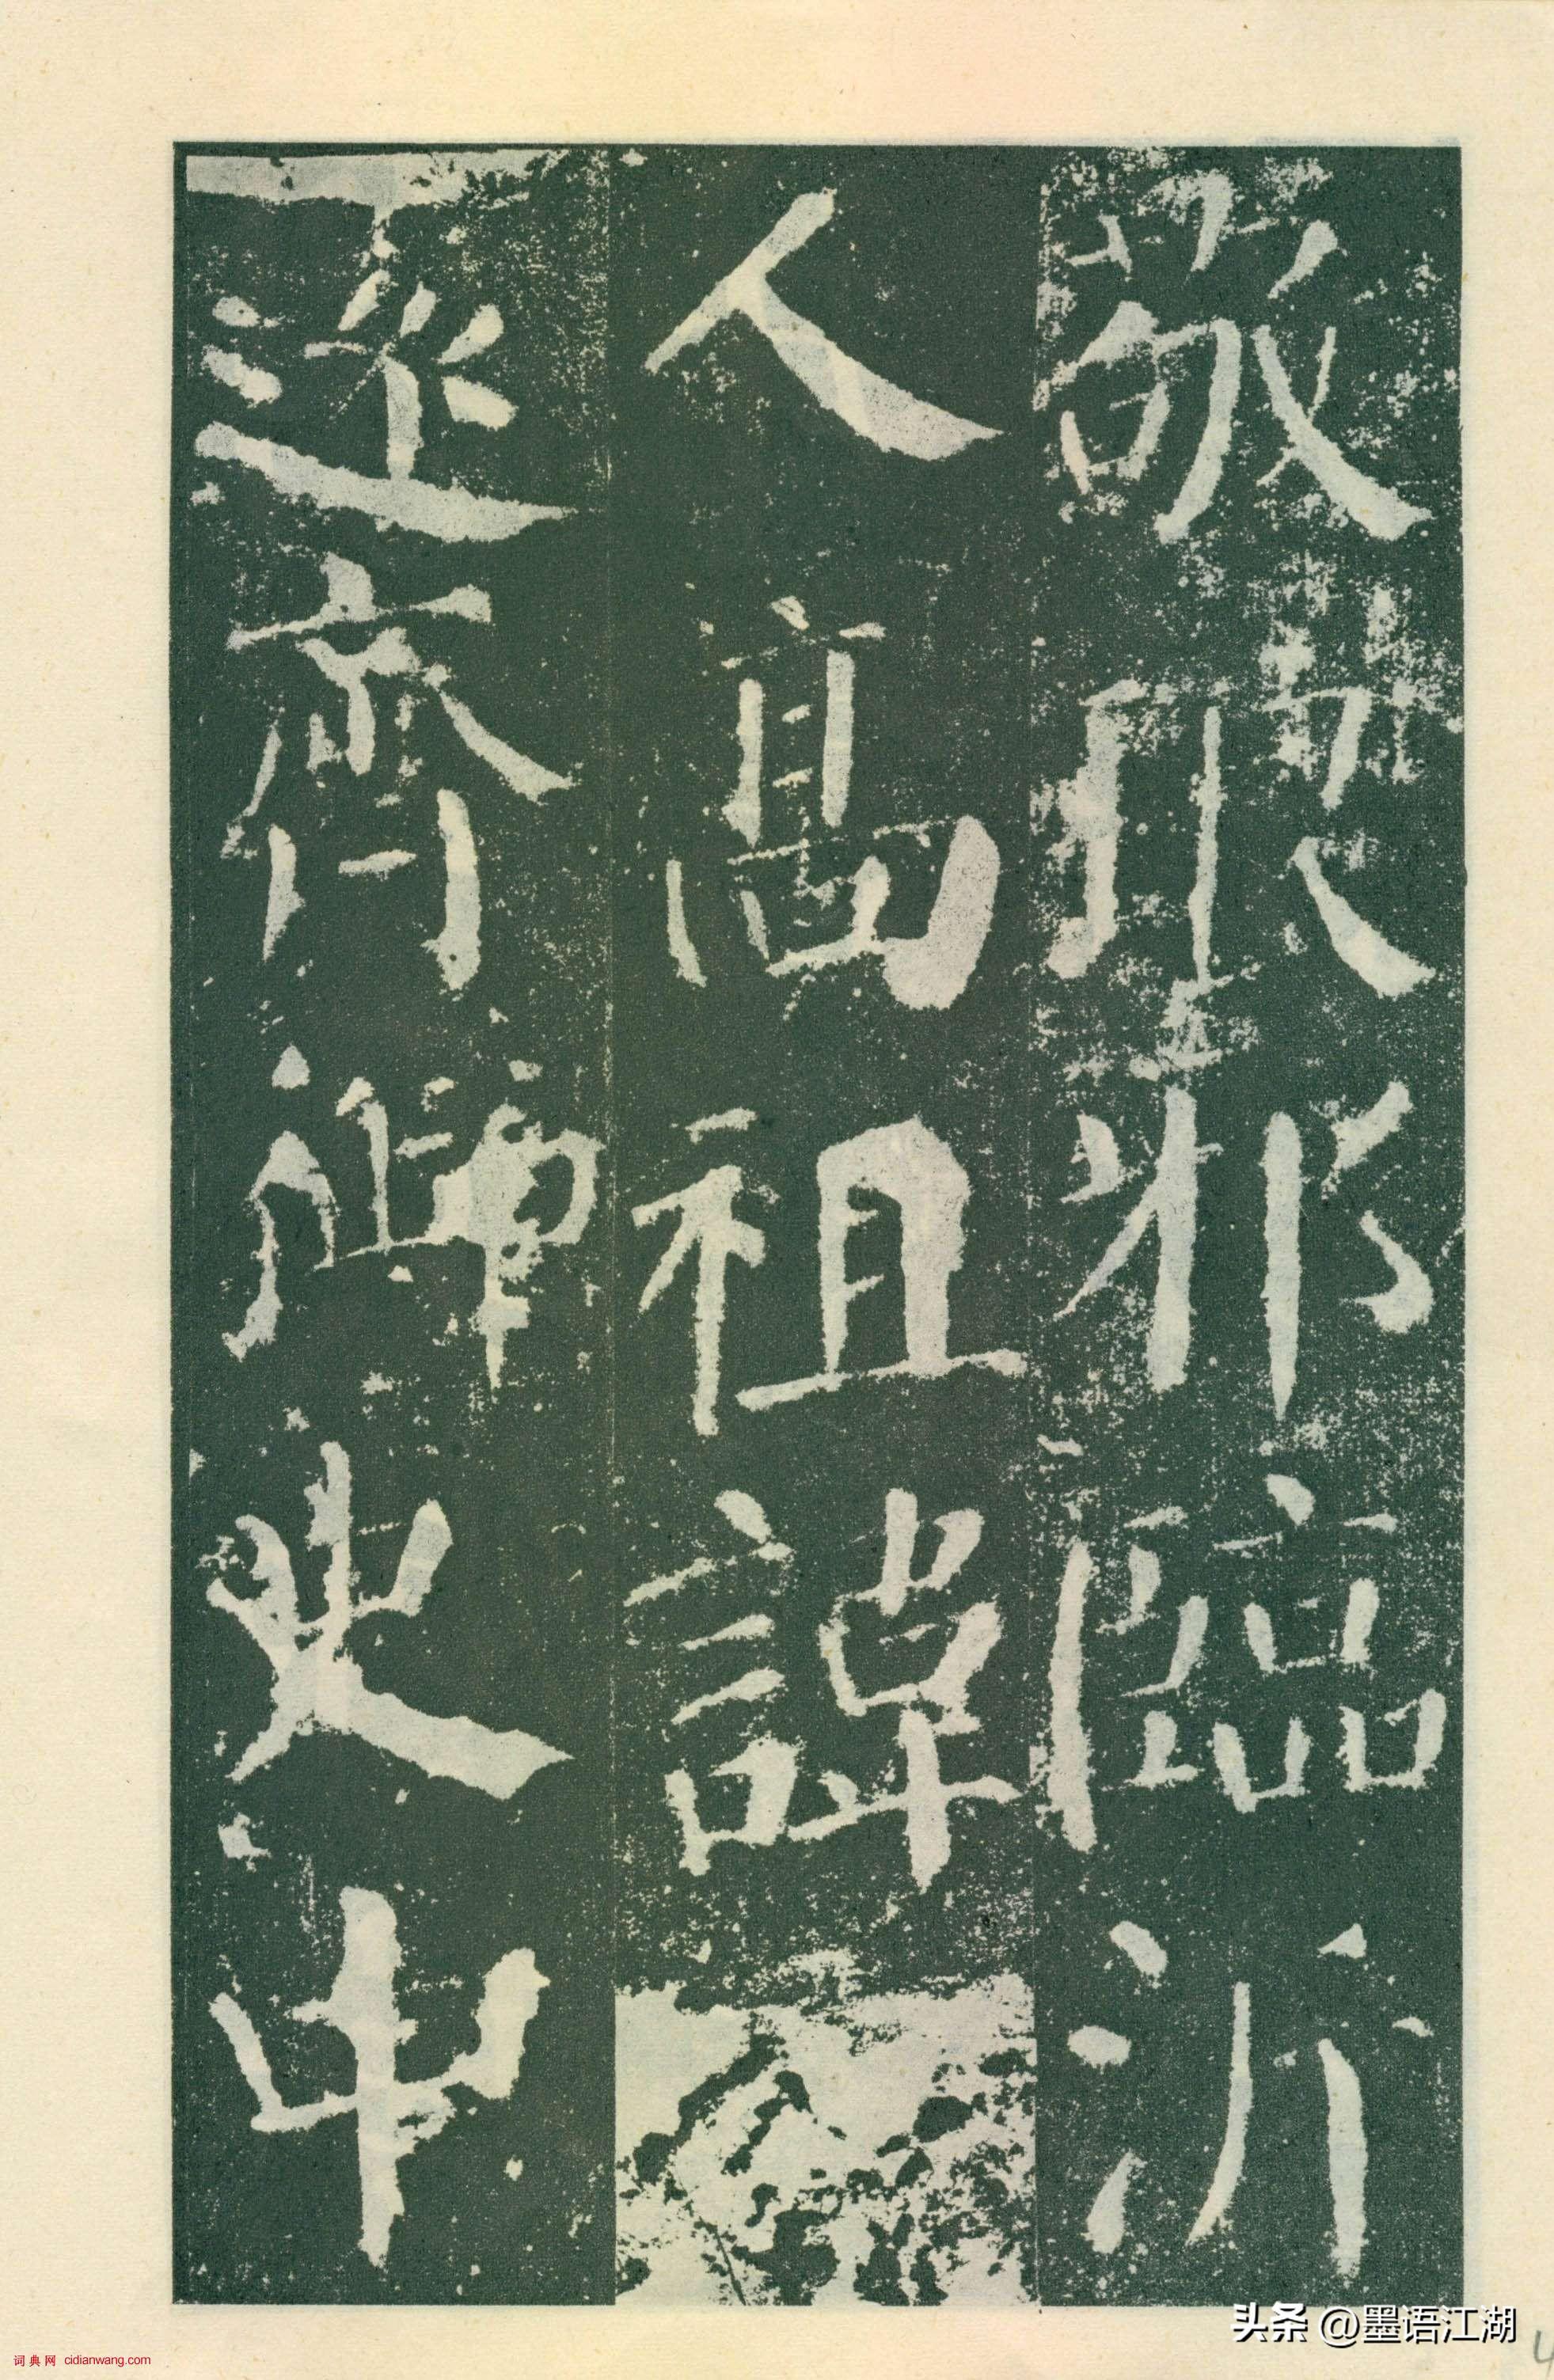 敬琅邪臨沂
人高祖諱
遠齊御史中
头条 @墨语江湖
词典网 cidianwang.com